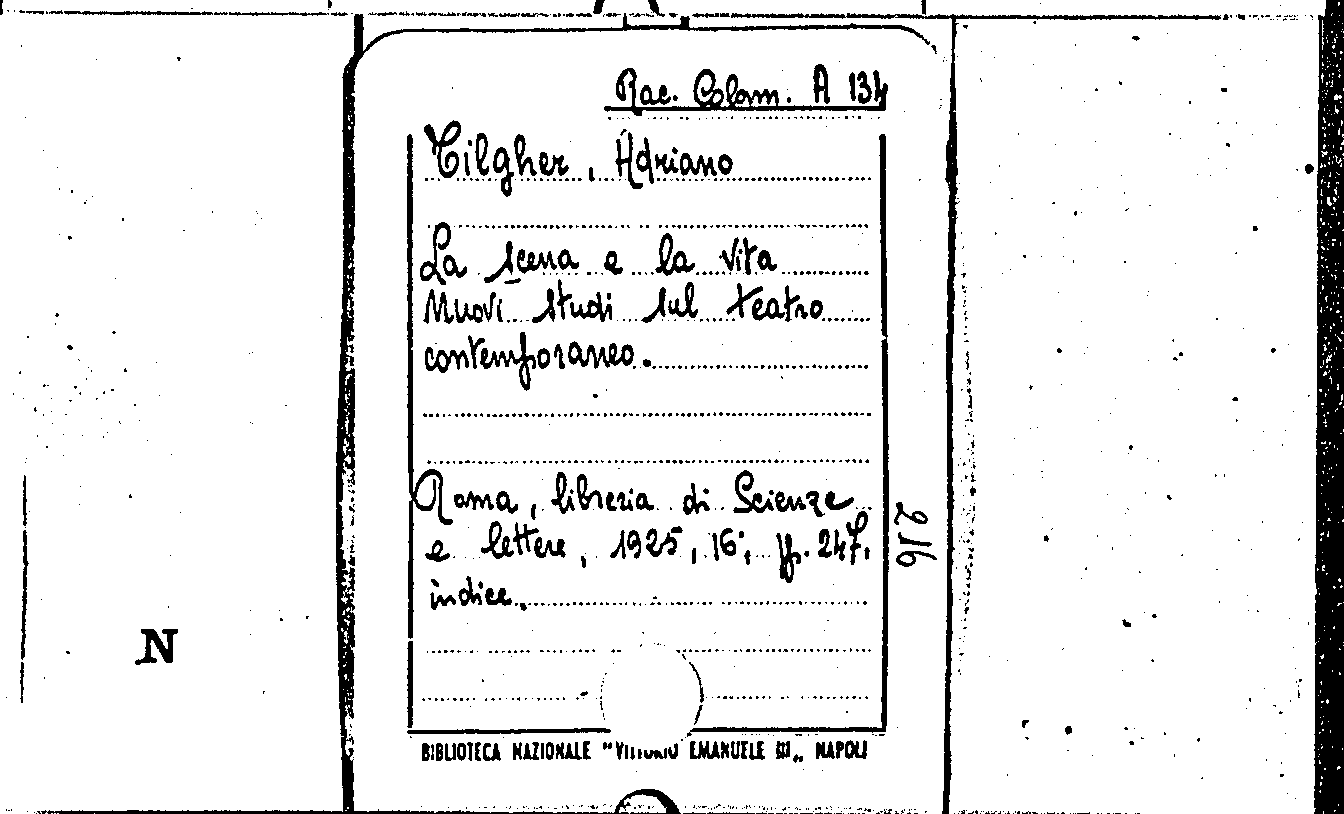 Rac. Colom. A 134
Tilgher, Adriano
La scena e la vita
Nuovi studi sul teatro
contemporaneo.
Roma, libreria di Scienze
e lettere, 1925, 16°, pp. 247.
indice.
216
N
BIBLIOTECA NAZIONALE "VITTORIO EMANUELE III„ NAPOLI